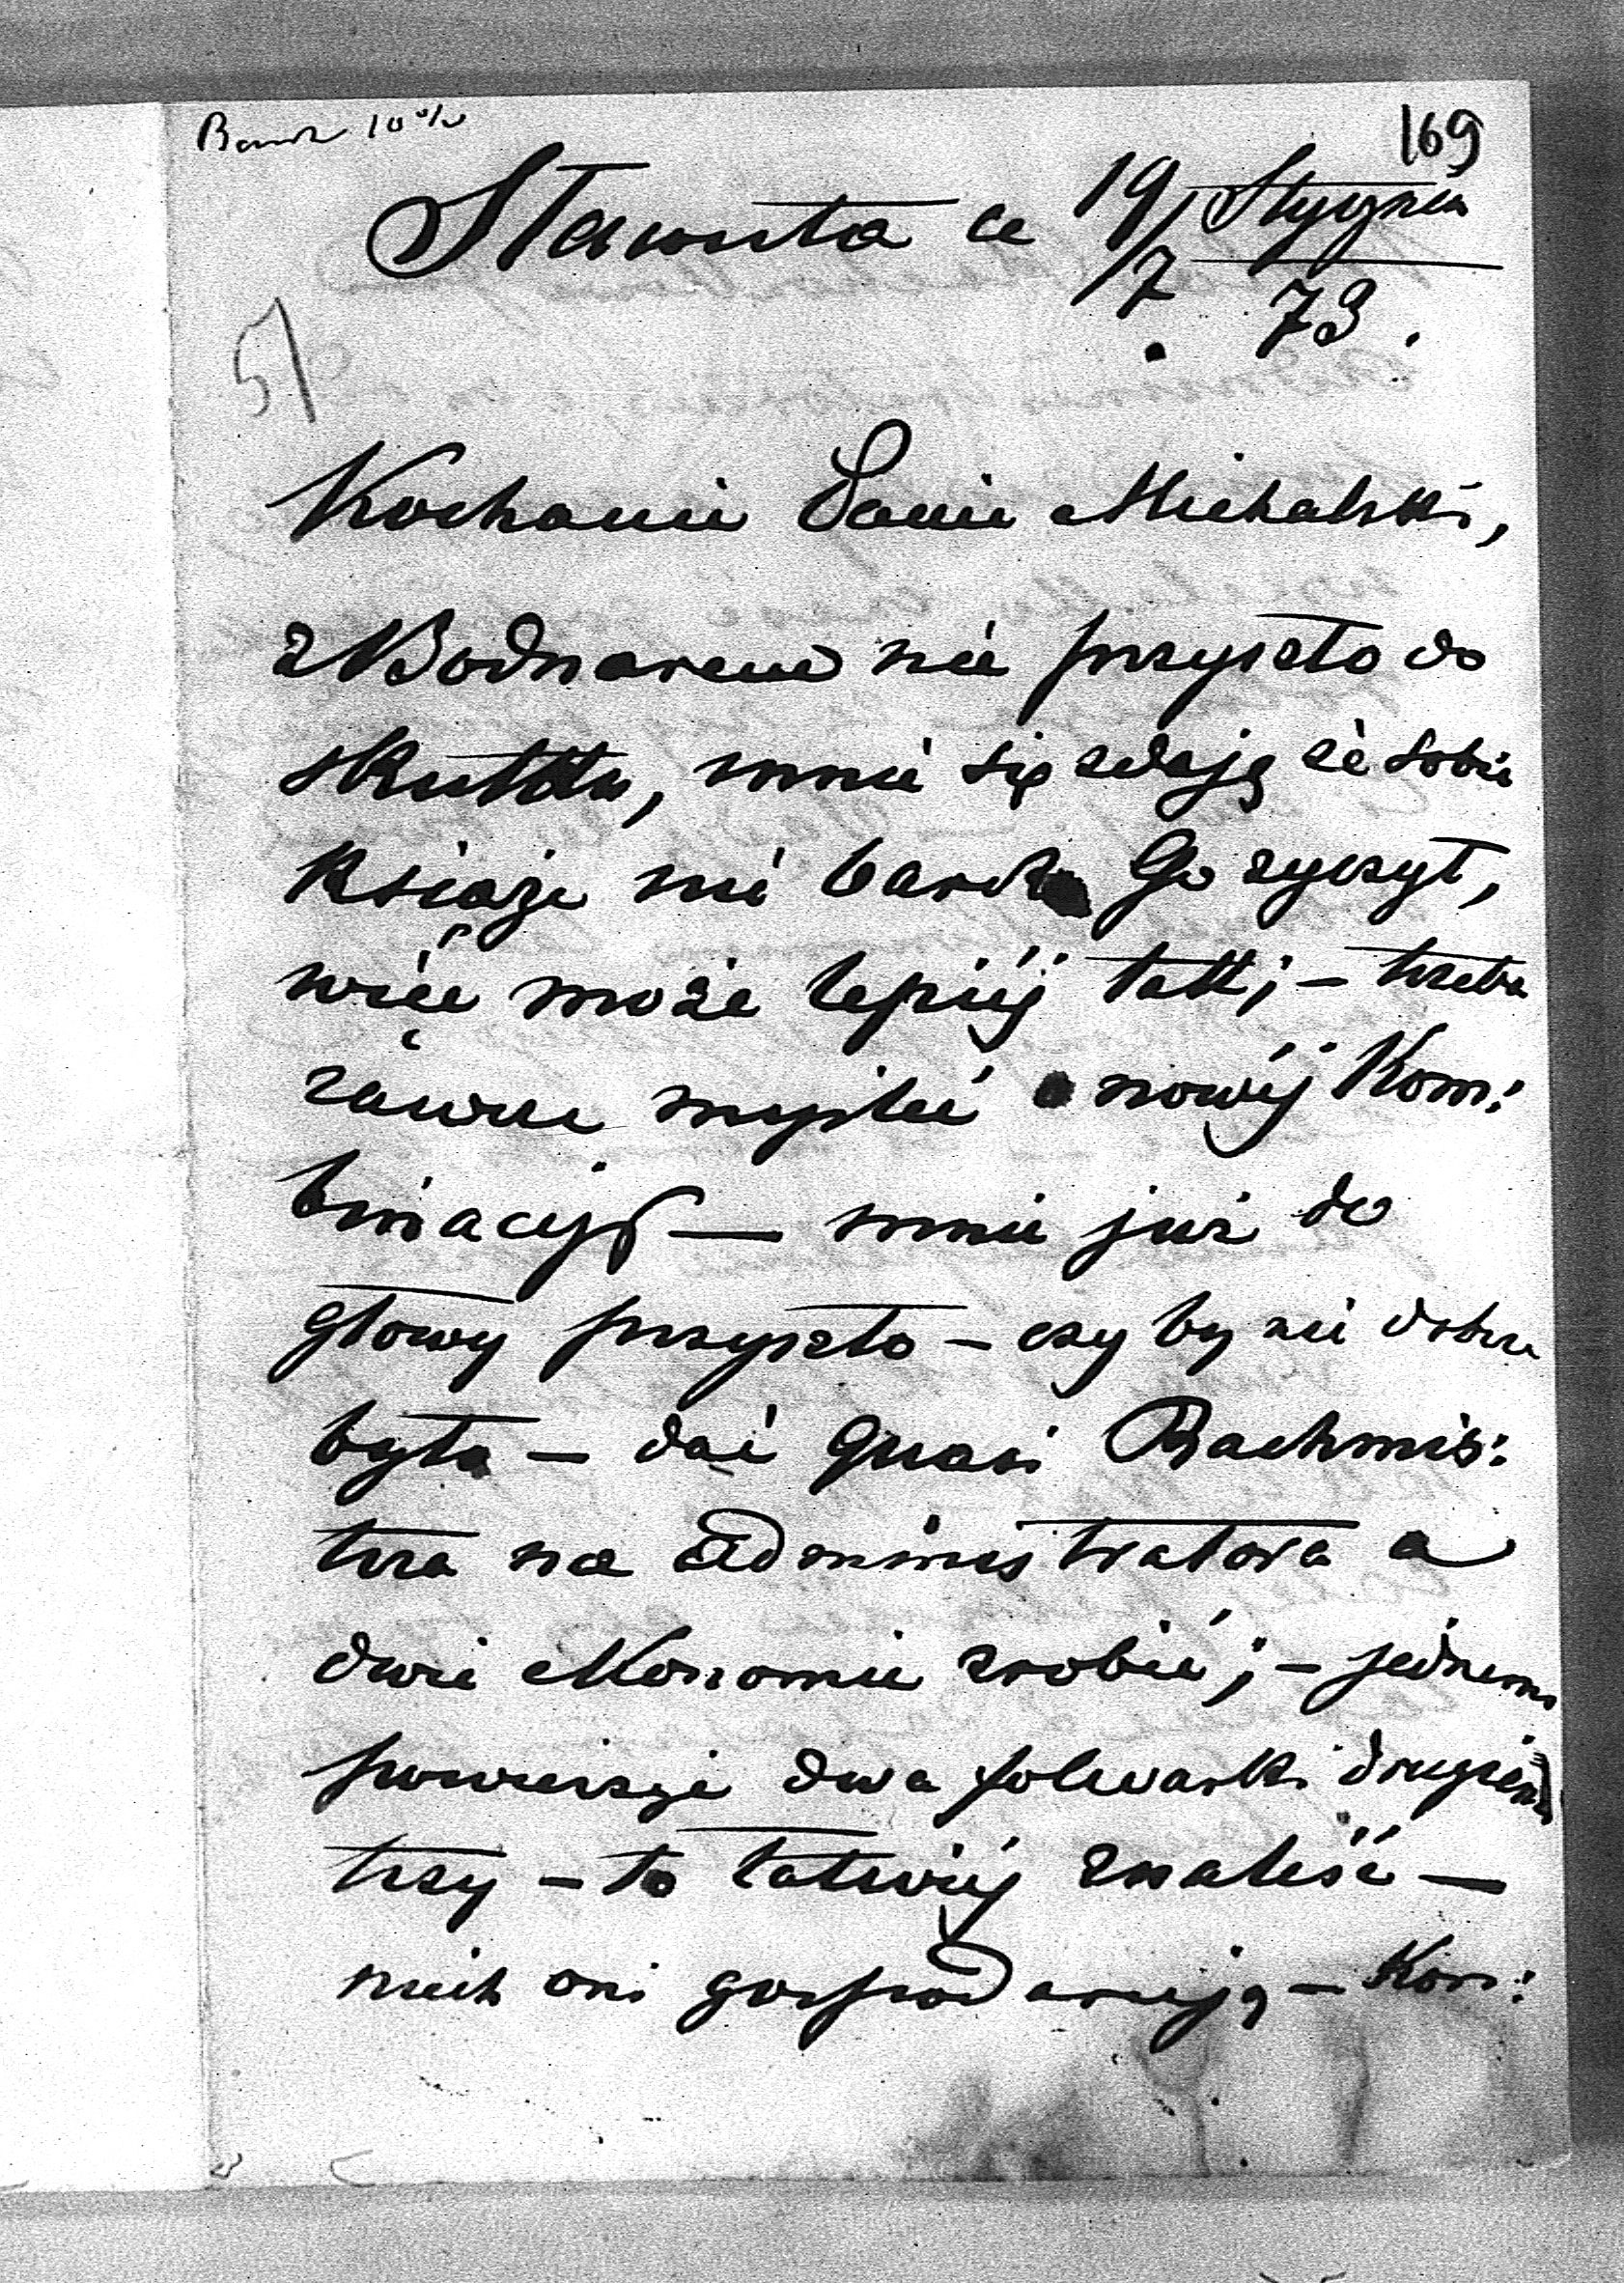 169
Sławuta ce 19/7 Stycznia
73.
5/
Kochanie Panie Michalski,
z Bodnarem nie przyszło do
skutku, mnie się zdaję że sobie
Książe nie bardzo Go życzył,
więc może lepiéj tak; – trzeba
zawsze myśleć o nowéj Kom:
binacyj — mnie już do
głowy przyszło – czy by nie dobrze
było – dać quasi Rachmis:
trza na Administratora a
dwie ekonomie zrobić; – jednemu
powierzyć dwa folwarki drugiemu
trzy – to łatwiéj znaleść —
niech oni gospodarują – Kon: